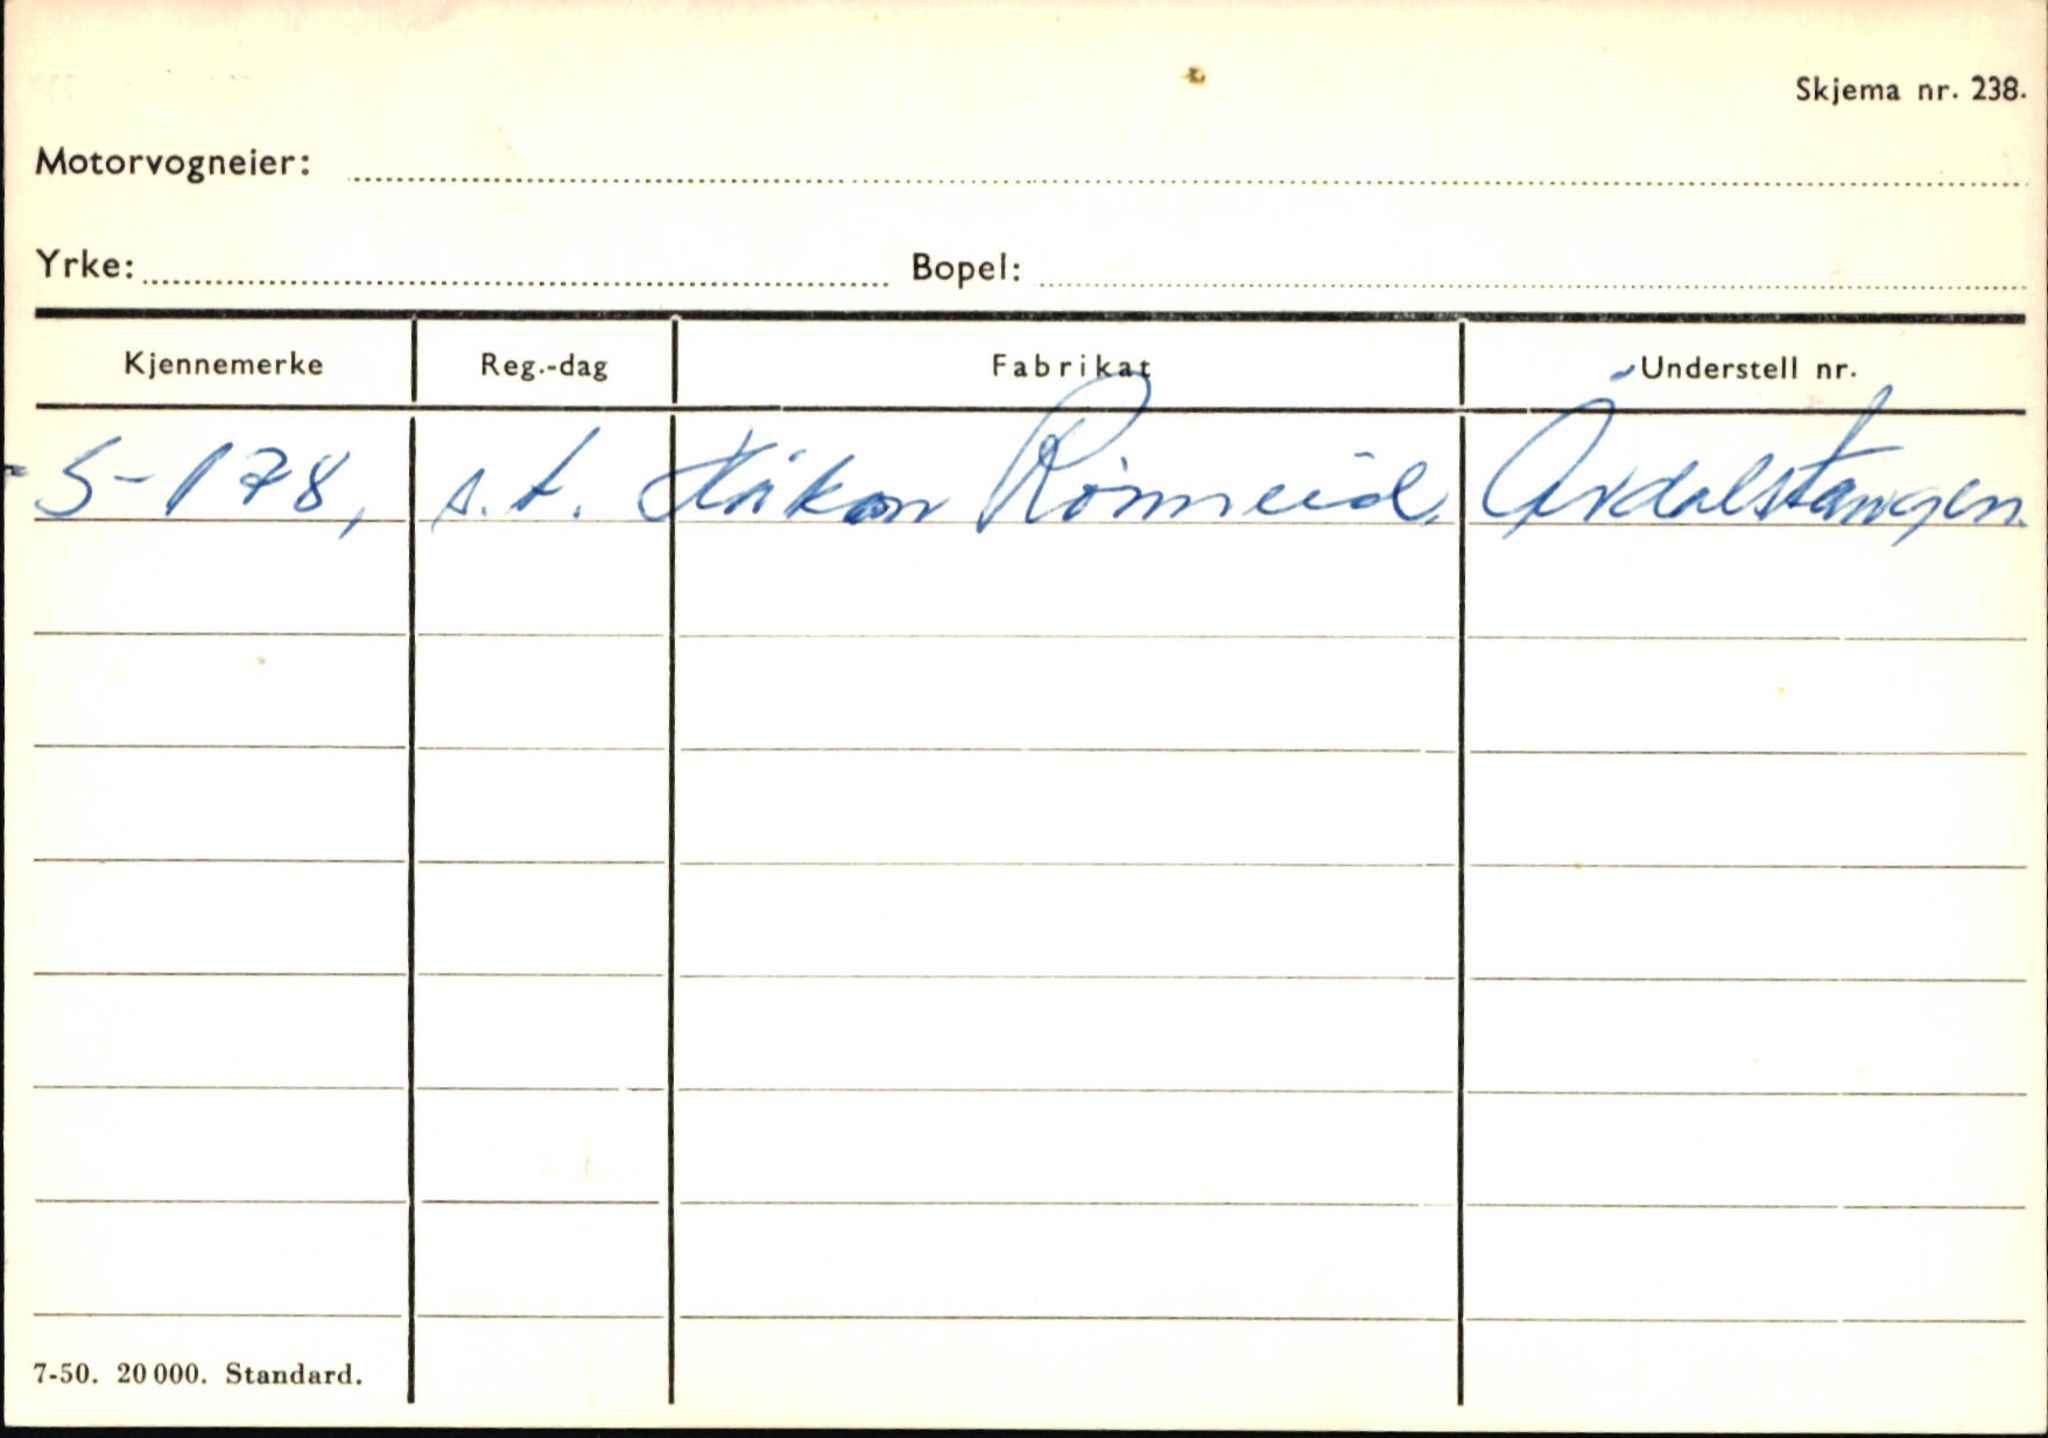 Skjema nr. 238.
Motorvogneier:
Yrke: Bopel:
Kjennemerke Reg.-dag Fabrikat Understell nr.
S-178, s.t. Håkon Rönneid, Årdalstangen.
7-50. 20 000. Standard.